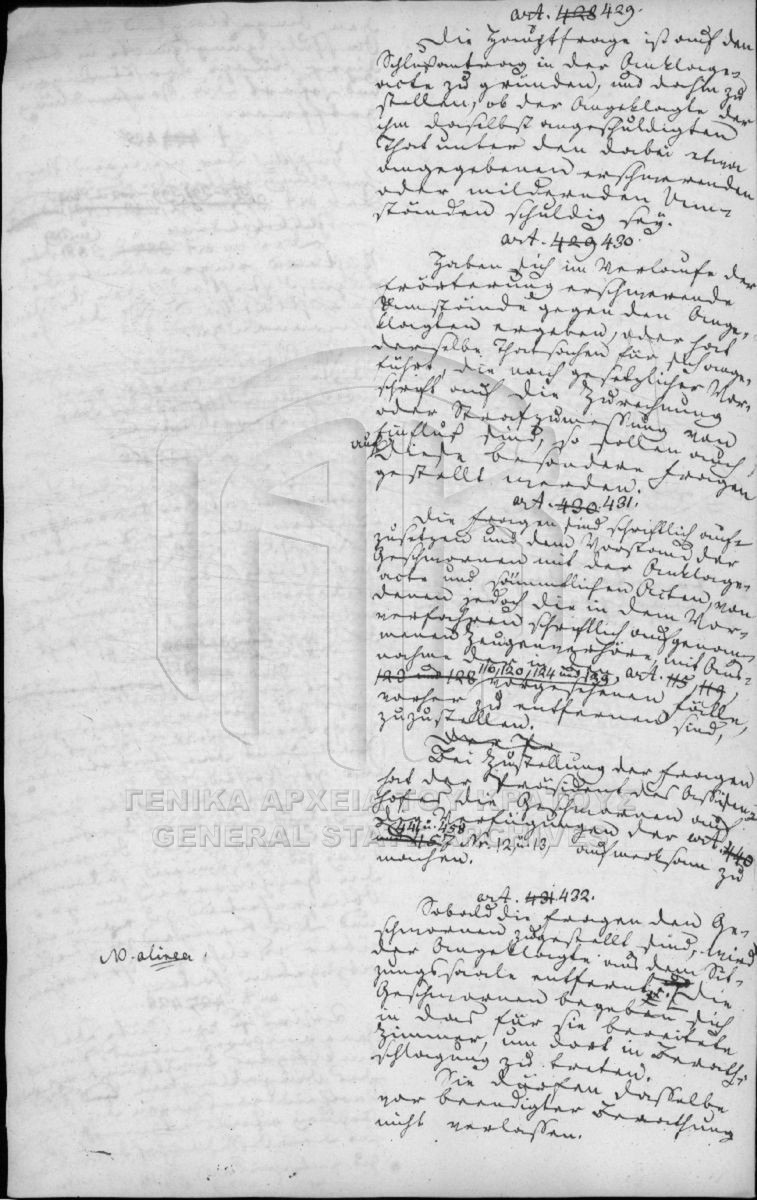 art. 428 429.
Die Hauptfrage ist auf den
Schlußantrag in der Anklage-
acte zu gründen, und dahin zu
stellen, ob der Angeklagte der
ihm daselbst angeschuldigten
That unter den dabei etwa
angegebenen erschwerenden
oder mildernden Um-
ständen schuldig sey.
art. 429 430.
Haben sich im Verlaufe der
Erörterung erschwerende
Umstände gegen den Ange-
klagten ergeben, oder hat
derselbe Thatsachen für sich ange-
führt, die nach gesetzlicher Vor-
schrift auf die Zurechnung
oder Strafzumessung von
Einfluß sind, so sollen auch
auf diese besondere Fragen
gestellt werden.
art. 430 431.
Die Fragen sind schriftlich aufzu-
zusetzen und dem Vorstand der
Geschwornen mit der Anklage-
acte und sämmtlichen Acten, von
denen jedoch die in dem Vor-
verfahren schriftlich aufgenom-
menen Zeugenverhöre, mit Aus-
nahme der in den art. 115, 119,
116, 120, 124 und 129
123 und 128 vorgesehenen Fälle,
vorher zu entfernen sind,
zuzustellen.
Bei Zustellung der Fragen
hat der Präsident des Assisen-
hofes die Geschwornen auf
die Verfügungen der art. 440
441 u. 458
und 457 Nr. 12 u. 13, aufmerksam zu
machen.
art. 431 432.
Sobald die Fragen den Ge-
schwornen zugestellt sind, wird
der Angeklagte aus dem Sit-
zungssaale entfernt. Die
Geschwornen begeben sich
in das für sie bereitete
Zimmer, um dort in Berath-
schlagung zu treten.
Sie dürfen dasselbe
vor beendigter Berathung
nicht verlassen.
N. alinea.
ΓΕΝΙΚΑ ΑΡΧΕΙΑ ΤΟΥ ΚΡΑΤΟΥΣ
GENERAL STATE ARCHIVES